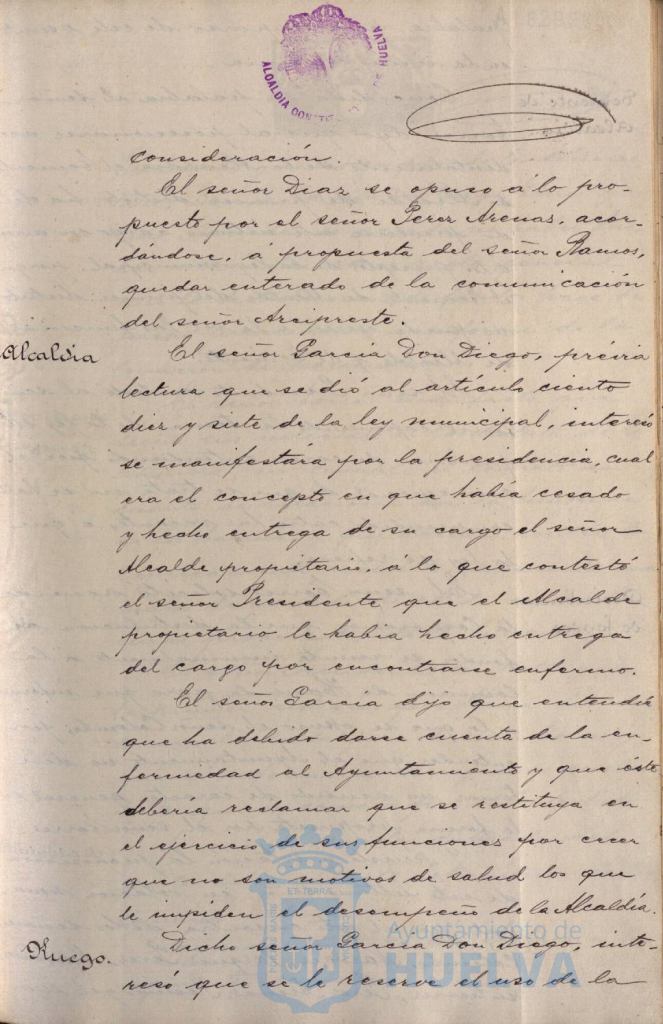 ALCALDIA CONST DE HUELVA
consideración.
El señor Diaz se opuso á lo pro-
puesto por el señor Perez Arenas, acor-
dándose, á propuesta del señor Ramos,
quedar enterado de la comunicación
del señor Arcipreste.
Alcaldía
El señor García Don Diego, prévia
lectura que se dió al artículo ciento
diez y siete de la ley municipal, interesó
se manifestára por la presidencia, cual
era el concepto en que había cesado
y hecho entrega de su cargo el señor
Alcalde propietario, á lo que contestó
el señor Presidente que el Alcalde
propietario le habia hecho entrega
del cargo por encontrarse enfermo.
El señor García dijo que entendia
que ha debido darse cuenta de la en-
fermedad al Ayuntamiento y que éste
debería reclamar que se restituya en
el ejercicio de sus funciones por creer
que no son motivos de salud los que
le impiden el desempeño de la Alcaldía.
Ruego.
Dicho señor García Don Diego, inte-
resó que se le reserve el uso de la
Ayuntamiento de
HUELVA